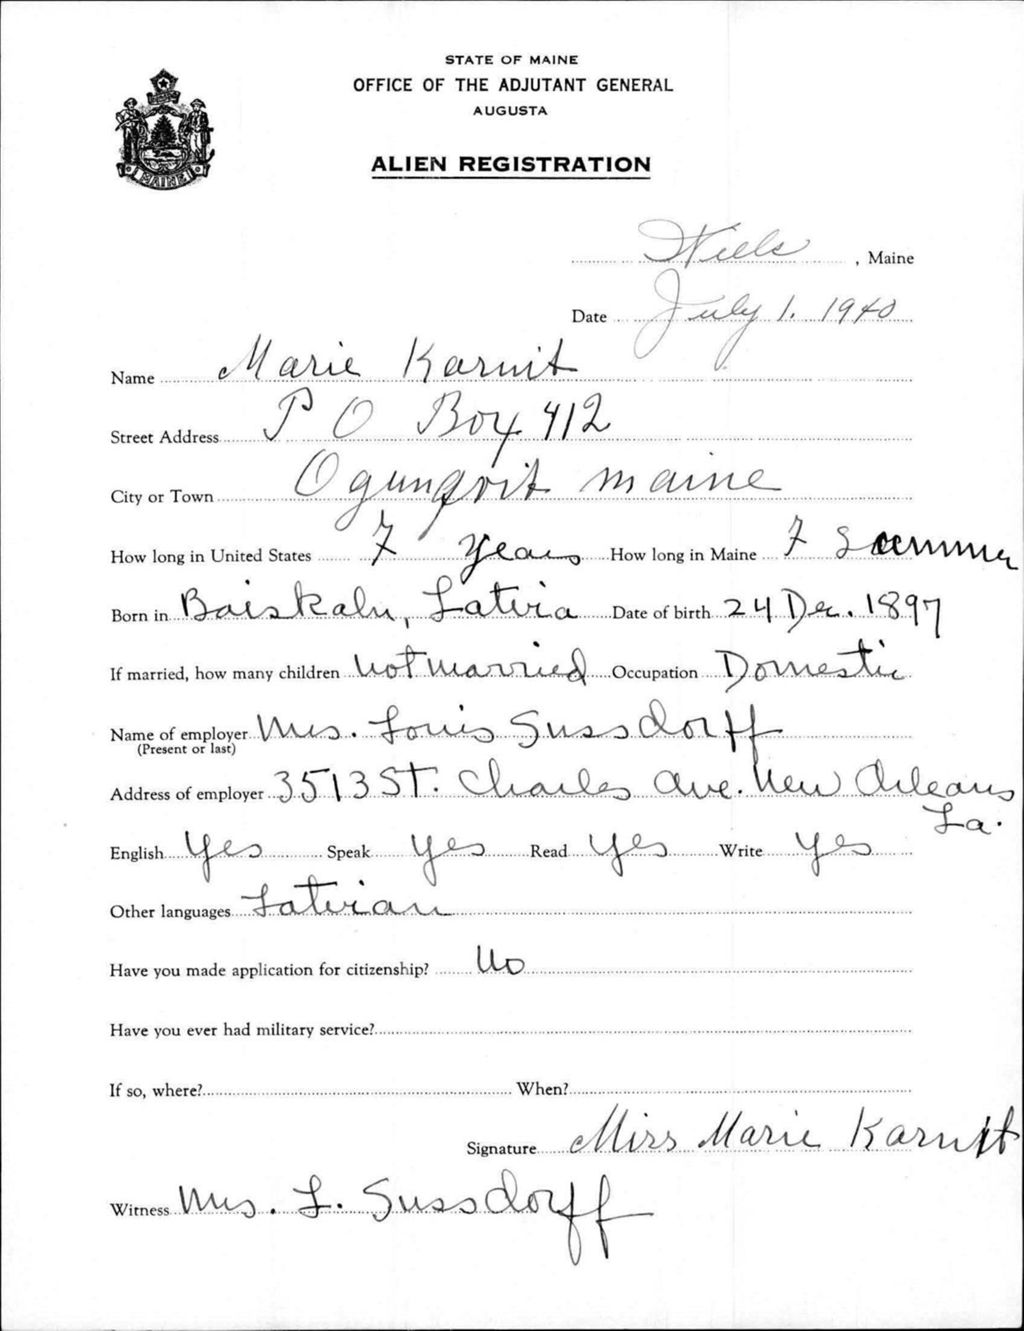 STATE OF MAINE
OFFICE OF THE ADJUTANT GENERAL
AUGUSTA
ALIEN REGISTRATION
MAINE
Wells, Maine
Date July 1. 1940
Name Marie Karnit
Street Address P O Box 412
City or Town Ogunqvit maine
How long in United States 7 years How long in Maine 7 Summer
Born in Boiskaln, Latvia Date of birth 24 Dec. 1897
If married, how many children not married Occupation Domestic
Name of employer Mrs. Louis Sussdorff
(Present or last)
Address of employer 3513 ST. Charles Ave. New Orleans
La.
English Yes Speak Yes Read Yes Write Yes
Other languages Latvian
Have you made application for citizenship? No
Have you ever had military service?
If so, where? When?
Signature Miss Marie Karnit
Witness Mrs. L. Sussdorff